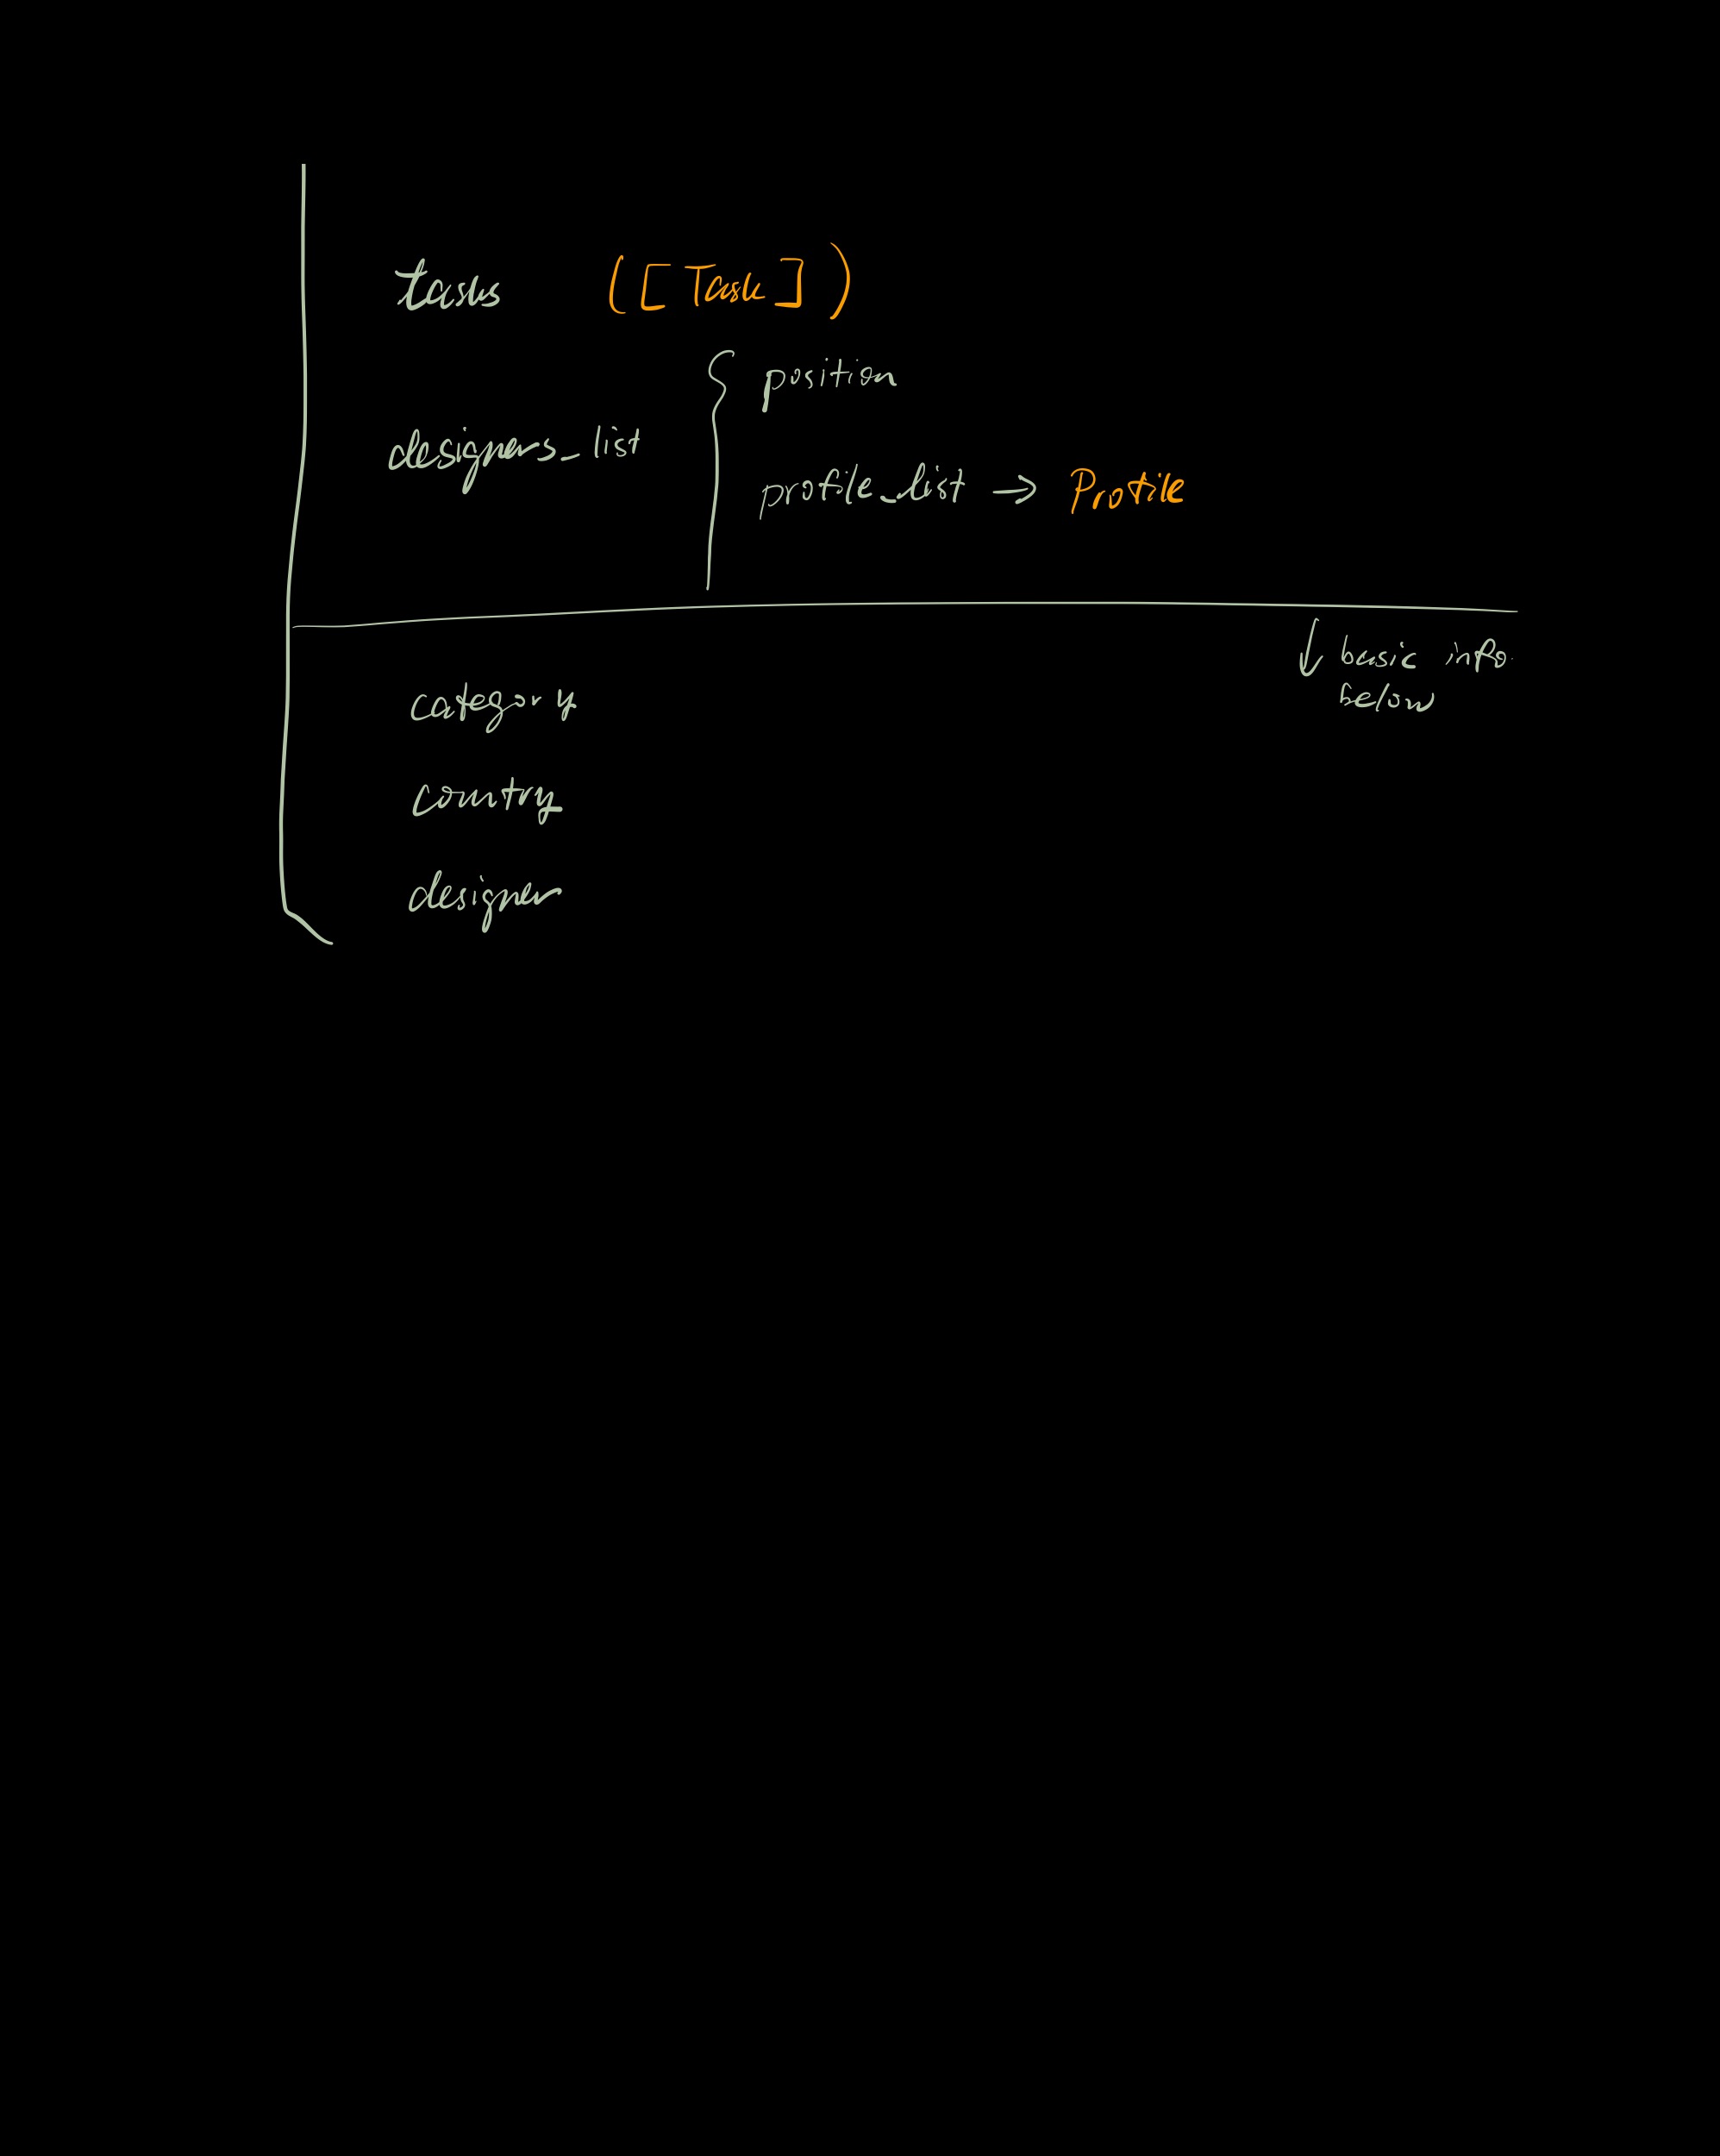 tasks ([Task])
position
designers_list
profile_list → Profile
basic info.
below
category
country
designer